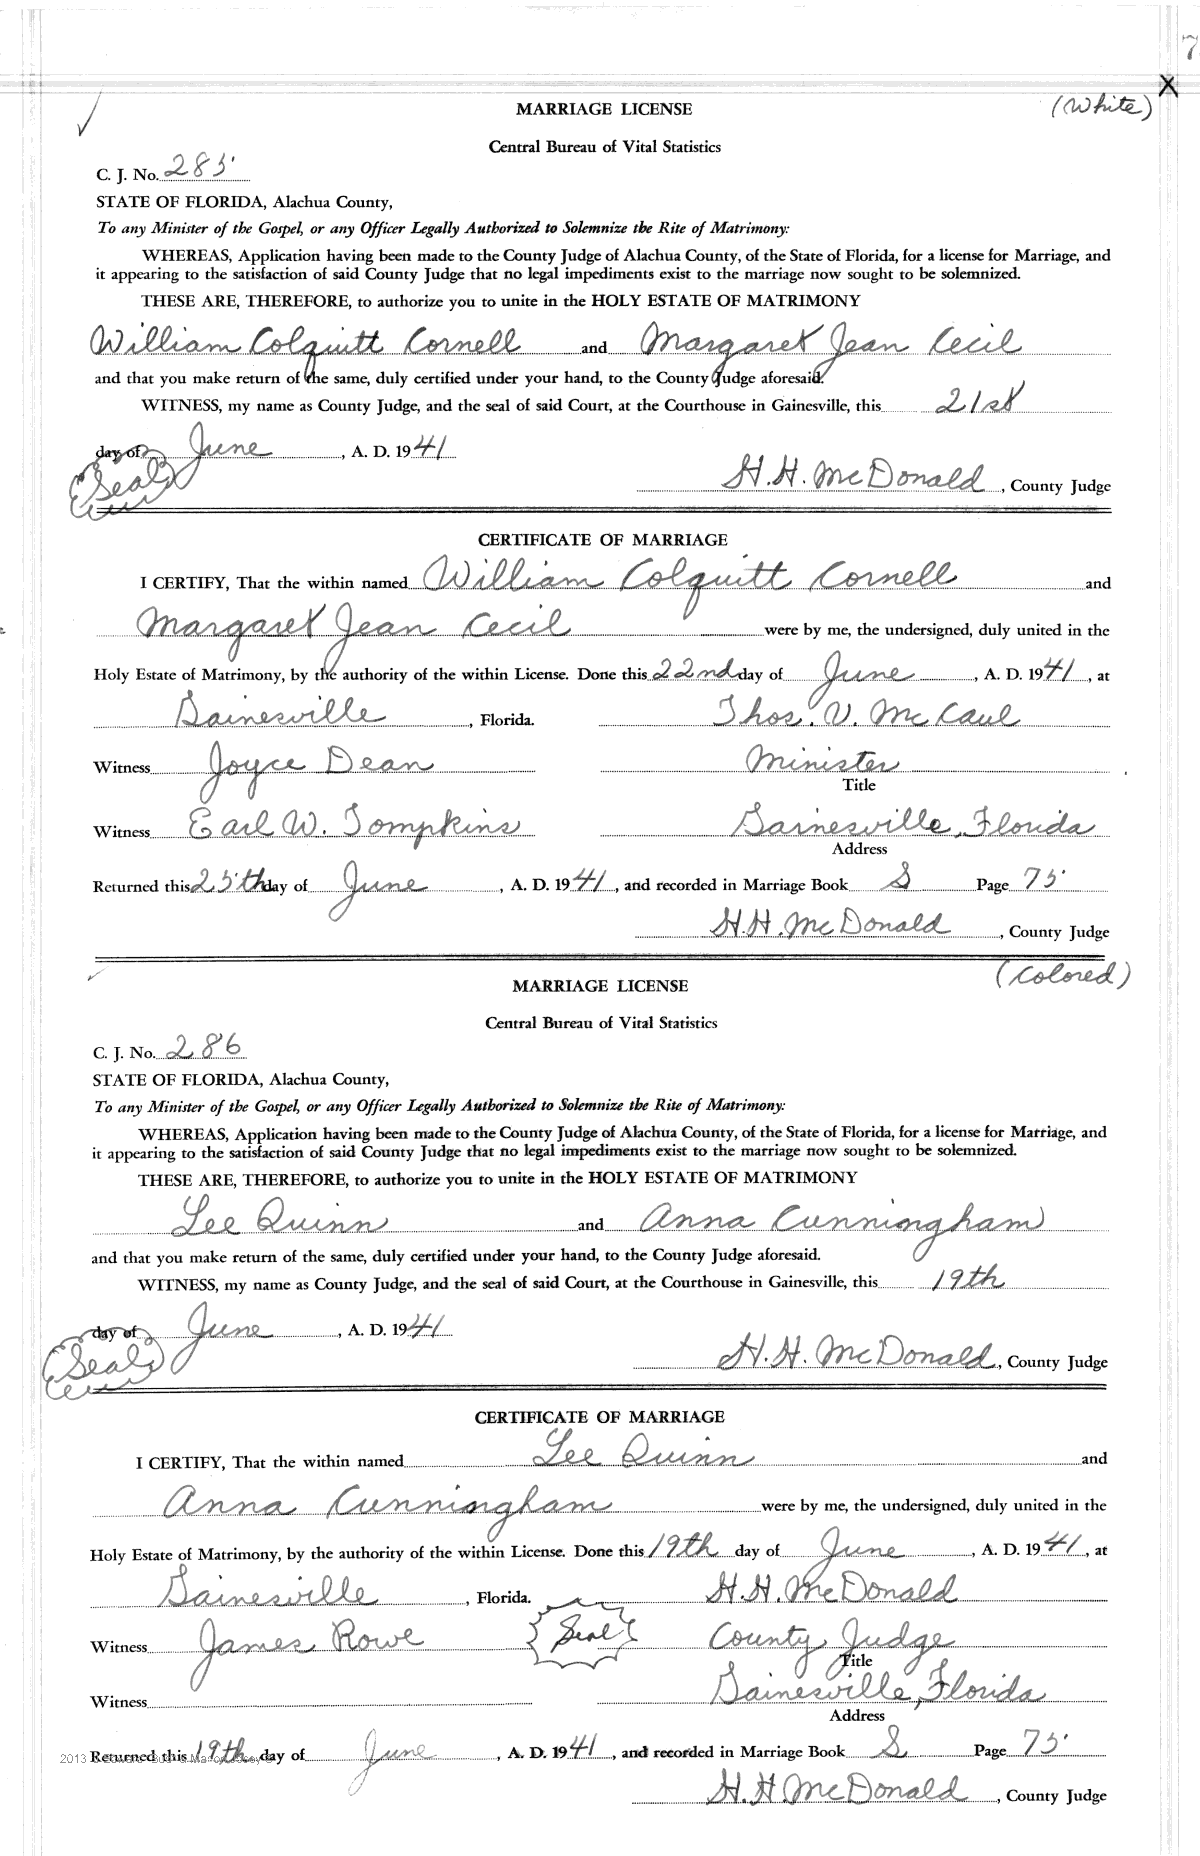 7
X
MARRIAGE LICENSE (White)
Central Bureau of Vital Statistics
C. J. No. 285
STATE OF FLORIDA, Alachua County,
To any Minister of the Gospel, or any Officer Legally Authorized to Solemnize the Rite of Matrimony:
WHEREAS, Application having been made to the County Judge of Alachua County, of the State of Florida, for a license for Marriage, and
it appearing to the satisfaction of said County Judge that no legal impediments exist to the marriage now sought to be solemnized.
THESE ARE, THEREFORE, to authorize you to unite in the HOLY ESTATE OF MATRIMONY
William Colquitt Cornell and Margaret Jean Cecil
and that you make return of the same, duly certified under your hand, to the County Judge aforesaid.
WITNESS, my name as County Judge, and the seal of said Court, at the Courthouse in Gainesville, this 21st
day of June, A. D. 1941
(Seal) H. H. McDonald, County Judge
CERTIFICATE OF MARRIAGE
I CERTIFY, That the within named William Colquitt Cornell and
Margaret Jean Cecil were by me, the undersigned, duly united in the
Holy Estate of Matrimony, by the authority of the within License. Done this 22nd day of June, A. D. 1941, at
Gainesville, Florida. Thos. V. McCaul
Witness Joyce Dean Minister
Title
Witness Earl W. Tompkins Gainesville, Florida
Address
Returned this 25th day of June, A. D. 1941, and recorded in Marriage Book S Page 75
H. H. McDonald, County Judge
(Colored)
MARRIAGE LICENSE
Central Bureau of Vital Statistics
C. J. No. 286
STATE OF FLORIDA, Alachua County,
To any Minister of the Gospel, or any Officer Legally Authorized to Solemnize the Rite of Matrimony:
WHEREAS, Application having been made to the County Judge of Alachua County, of the State of Florida, for a license for Marriage, and
it appearing to the satisfaction of said County Judge that no legal impediments exist to the marriage now sought to be solemnized.
THESE ARE, THEREFORE, to authorize you to unite in the HOLY ESTATE OF MATRIMONY
Lee Quinn and Anna Cunningham
and that you make return of the same, duly certified under your hand, to the County Judge aforesaid.
WITNESS, my name as County Judge, and the seal of said Court, at the Courthouse in Gainesville, this 19th
day of June, A. D. 1941
(Seal) H. H. McDonald, County Judge
CERTIFICATE OF MARRIAGE
I CERTIFY, That the within named Lee Quinn and
Anna Cunningham were by me, the undersigned, duly united in the
Holy Estate of Matrimony, by the authority of the within License. Done this 19th day of June, A. D. 1941, at
Gainesville, Florida. H. H. McDonald
Witness James Rowe Seal County Judge
Title
Witness Gainesville, Florida
Address
2013
Returned this 19th day of June, A. D. 1941, and recorded in Marriage Book S Page 75
H. H. McDonald, County Judge